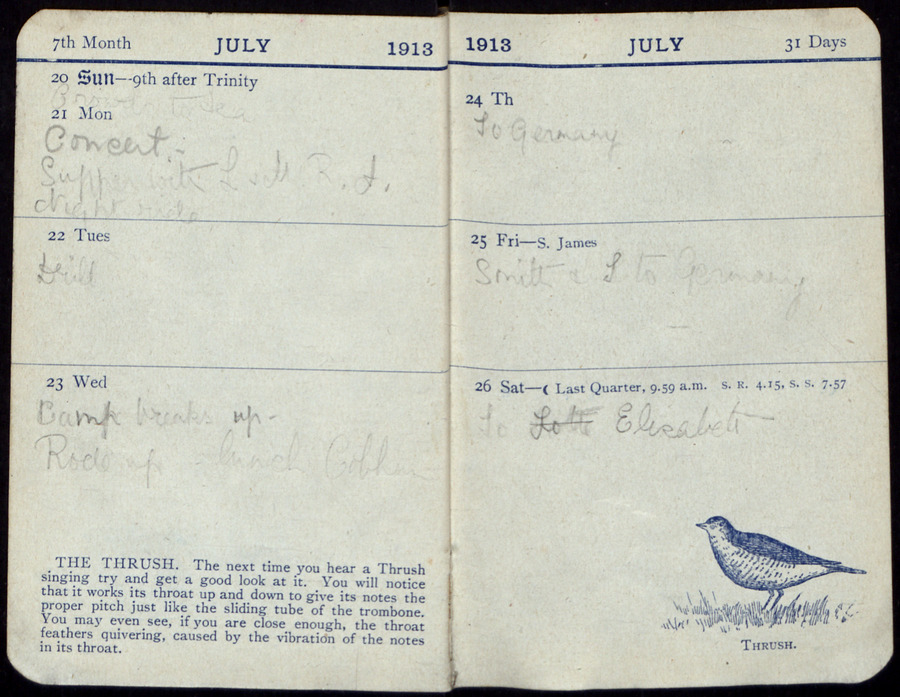 7th Month JULY 1913
20 Sun—9th after Trinity
21 Mon
Concert -
Supper with
Night
22 Tues
Drill
23 Wed
Camp breaks up -
Rode up - lunch Cobham
THE THRUSH. The next time you hear a Thrush
singing try and get a good look at it. You will notice
that it works its throat up and down to give its notes the
proper pitch just like the sliding tube of the trombone.
You may even see, if you are close enough, the throat
feathers quivering, caused by the vibration of the notes
in its throat.
1913 JULY 31 Days
24 Th
To Germany
25 Fri—S. James
Smith & I to Germany
26 Sat—☾ Last Quarter, 9.59 a.m. S. R. 4.15, S. S. 7.57
To Elizabeth
THRUSH.